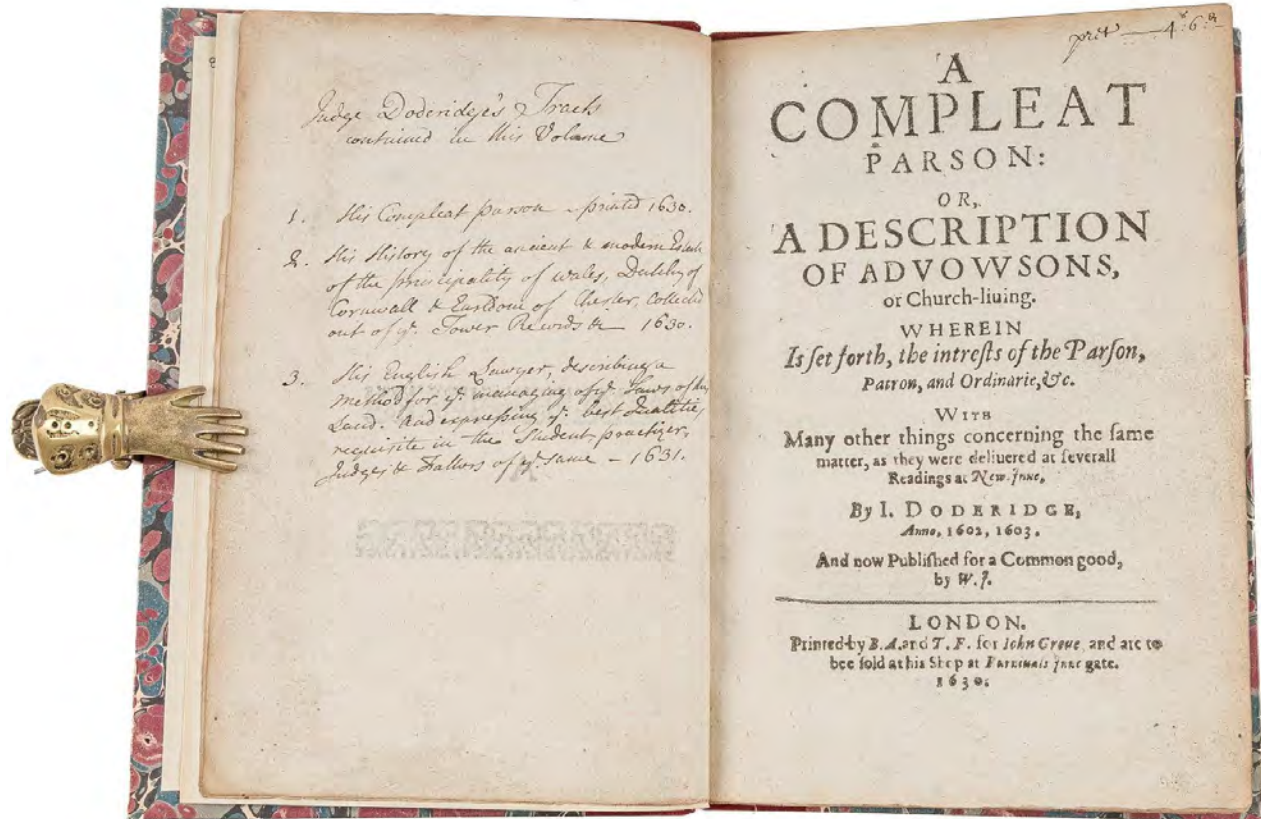 Judge Doderidge's Tracts
contained in this Volume
1. His Compleat parson - printed 1630.
2. His History of the ancient & modern Estate
of the principality of wales, Dutchy of
Cornwall & Earldome of Chester, Collected
out of yᵉ. Tower Records &c — 1630.
3. His English Lawyer, describing a
method for yᵉ. managing of yᵉ. Laws of the
Land. And expressing yᵉ. best Qualities
requisite in the Student-practizer,
Judges & Fathers of yᵉ. same - 1631.
pret — 4ˢ: 6:ᵈ
A
COMPLEAT
PARSON:
OR,
A DESCRIPTION
OF ADVOVVSONS,
or Church-liuing.
WHEREIN
Is ſet forth, the intreſts of the Parſon,
Patron, and Ordinarie, &c.
WITH
Many other things concerning the ſame
matter, as they were deliuered at ſeverall
Readings at New-Inne,
By I. DODERIDGE,
Anno, 1602, 1603.
And now Publiſhed for a Common good,
by W. J.
LONDON.
Printed by B. A. and T. F. for Iohn Groue, and are to
bee ſold at his Shop at Furnivals Inne gate.
1630.